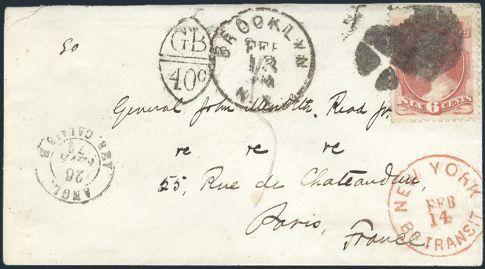 Go
GB
40c
BROOKLYN
FEB
13
N.Y.
SIX 6 CENTS
General John Meredith Read Jr.
re re re
55, Rue de Chateaudun,
Paris,
France
ANGL.
26
AMB. CALAIS
NEW YORK
FEB
14
BR TRANSIT